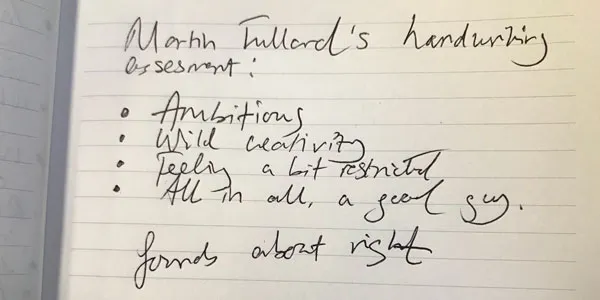 Martin Tullard's handwriting
assesment:
• Ambitious
• Wild creativity
• Feeling a bit restricted
• All in all, a good guy.
Sounds about right